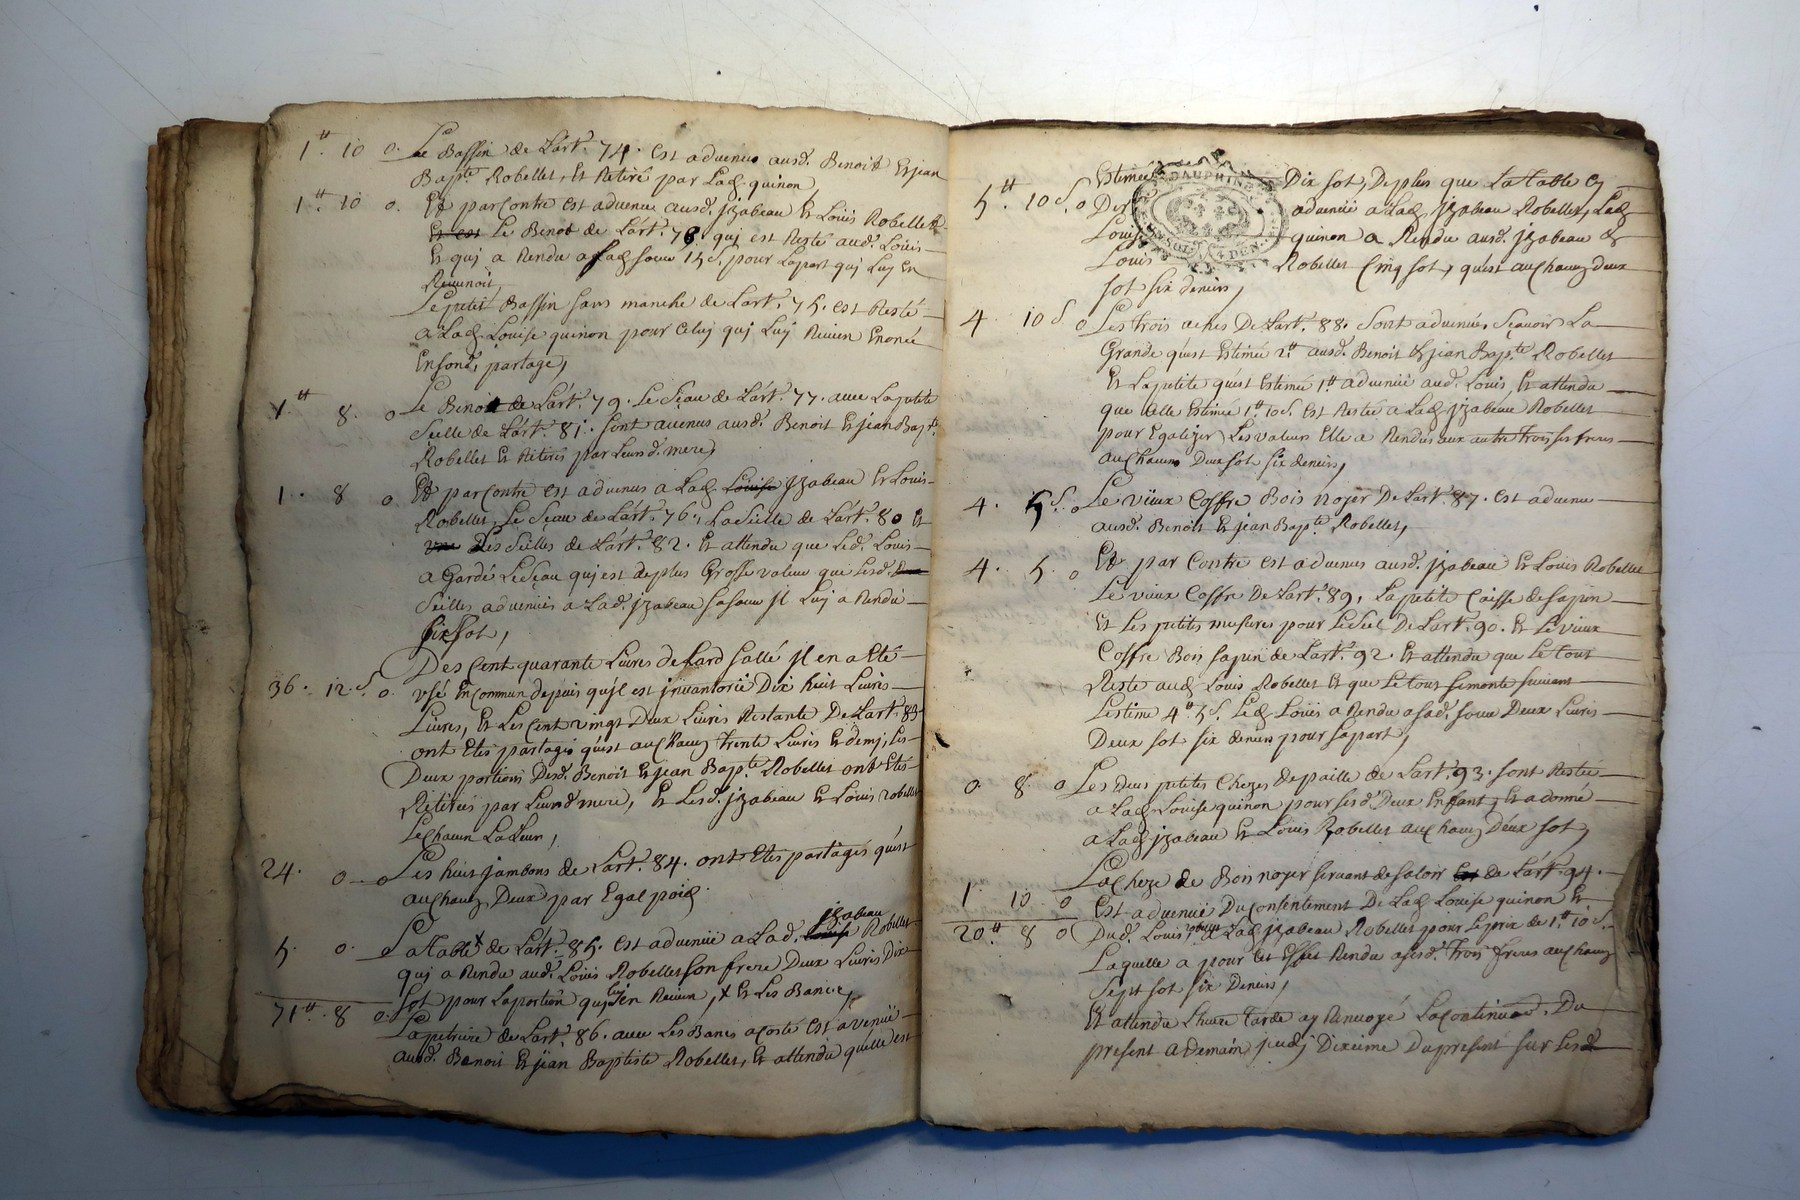 1ᵗᵗ. 10 0. Le Bassin de Lart. 74. est advenus ausd. Benoit Et jean
Bapᵗᵉ Robellet, Et Retiré par Lad. quinon
1ᵗᵗ. 10 0. Et par Contre est advenue ausd. jzabeau Et Loüis Robellet
Et est Le Benot de Lart. 78. quj est Resté aud. Louis
Et quj a Rendu a sad. soeur 15 s. pour Lapart quj Luy En
Revenoit,
Le petit Bassin sans manche de Lart. 75. est Resté
a Lad. Louise quinon pour Celuj quj Luy Revien
Ensond. partage,
1.ᵗᵗ 8. 0 Le Benoit de Lart. 79. Le Seau de Lart. 77. avec La petite
Seille de Lart. 81. sont avenus ausd. Benoit Et jean Bapᵗ.
Robellet Et Retirés par Leursd. mere,
1. 8 0 Et par Contre est advenus a Lad. Louise jzabeau Et Louis
Robellet, Le Seau de Lart. 76., La Seille de Lart. 80 Et
Les Seilles de Lart. 82. Et attendu que Led. Louis
a Gardé Le Seau quj est de plus Grosse valeur que Lesd.
Seilles advenües a Lad. jzabeau sa soeur jl Luj a Rendu
six sot,
Des Cent quarante Livres de Lard sallé jl en a Eté
36. 12. s. 0. usé En Commun depuis qu'jl est jnvantorié Dix huit Livres
Livres, Et Les Cent vingt Deux Livres Restante De Lart. 83
ont Etes partagés qu'est au Chaung trente Livres Et demj, Les
Deux portions Desd. Benoit Et jean Bapᵗᵉ Robellet ont Etés
Retirées par Leursd mere, Et Lesd. jzabeau Et Louis robellet
Le Chacun La Leur,
24. 0 0 Les huit jambons de Lart. 84. ont Etes partagés qu'est
au Chaung Deux par Egal poid.
jzabeau
5. 0. 0 La Table de Lart. 85. est advenüe a Lad. Louise Robellet
quj a Rendu aud. Louis Robellet son frere Deux Livres Dix
sot pour La portion quj luj en Revien, Et Les Bancs,
71ᵗᵗ. 8 0. La petriere de Lart. 86. avec Les Bancs a costé est avenüe
ausd. Benoit Et jean Baptiste Robellet, Et attendu quelle est
DAUPHINE
SOLS 4 DEN.
5ᵗᵗ. 10 s. 0 Estimée Dix sot, De plus que La Table
advenüe a Lad. jzabeau Robellet, Lad.
Louise quinon a Rendu ausd. jzabeau &
Louis Robellet Cinq sot, qu'est au Chaung deux
sot six deniers,
4. 10 s 0 Les trois aches De Lart. 88. sont advenües Sçavoir La
Grande qu'est Estimée 2ᵗᵗ ausd. Benoit Et jean Bapᵗᵉ Robellet
Et La petite qu'est Estimée 1ᵗᵗ advenüe aud. Louis, Et attendu
que Celle Estimée 1ᵗᵗ 10 s. est Restée a Lad. jzabeau Robellet
pour Egalizer Les valeurs Elle a Rendus aux autre trois ses freres
au Chacun Deux sot six deniers,
4. 5 s. 0 Le vieux Coffre Bois noyer De Lart. 87. est advenu
ausd. Benoit Et jean Bapᵗᵉ Robellet,
4. 5. 0 Et par Contre est advenus ausd. jzabeau Et Louis Robellet
Le vieux Coffre De Lart. 89, La petite Caisse de sapin
Et Les petits mesures pour Le Sel De Lart. 90. Et Le vieux
Coffre Bois sapin de Lart. 92. Et attendu que Le tout
Reste aud. Louis Robellet Et que Le tout se monte suivant
Lestime 4ᵗᵗ 5 s. Led. Loüis a Rendu a sad. soeur Deux Livres
Deux sot six deniers pour sa part,
0. 8. 0 Les deux petites Chezes de paille de Lart. 93. sont Restée
a Lad. Louise quinon pour sesd. Deux Enfant, Et a donné
a Lad. jzabeau Et Louis Robellet au Chaung Deux sot,
1. 10 0 La Cheze de Bois noyer servant de saloir de Lart. 94.
est advenüe Du Consentement De Lad. Louise quinon Et
20ᵗᵗ 8 0 Dud. Louis robellet a Lad. jzabeau Robellet pour Le prix de 1ᵗᵗ 10 s.
Laquelle a pour Cet Effet Rendu a sesd. trois freres au Chaung
sept sot six Deniers,
Et attendu Lheure tarde ay Renvoyé La Continuaôn. Du
present a demain jeudj Dixième Du present sur Lesd.